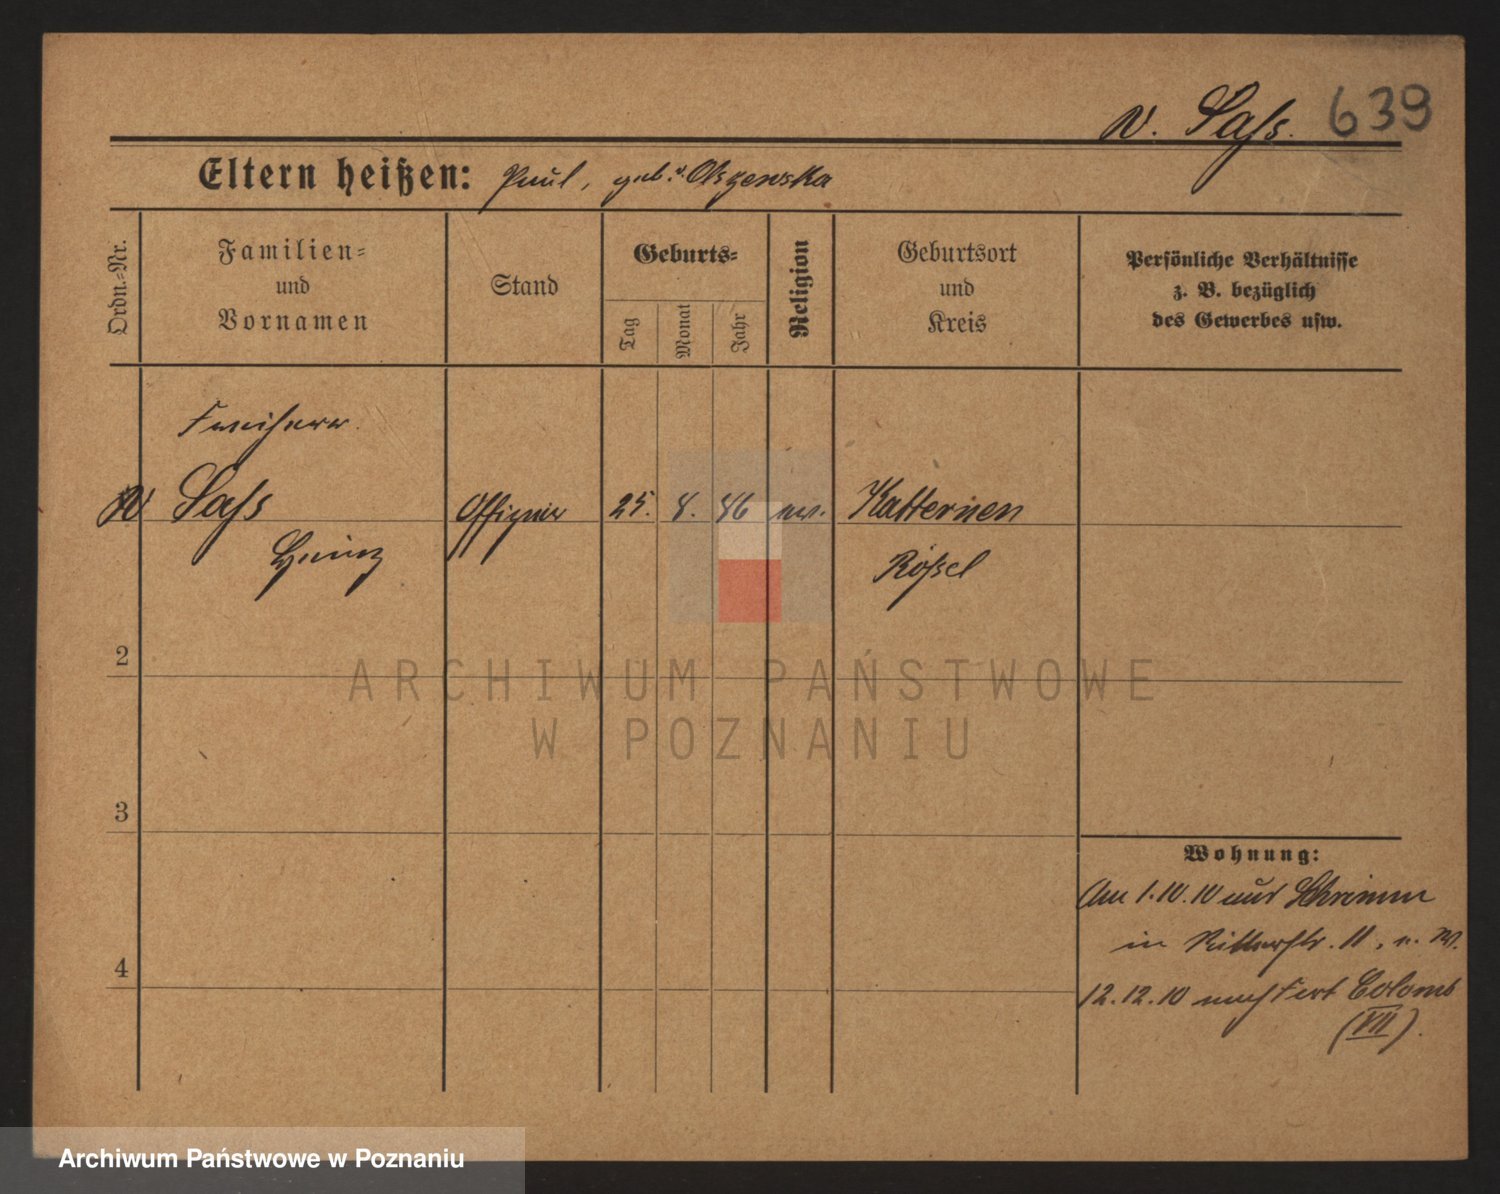 v. Sass. 639
Eltern heißen: Paul, geb. v. Olszewska
Ordn.-Nr.
Familien-
und
Vornamen
Stand
Geburts-
Tag
Monat
Jahr
Religion
Geburtsort
und
Kreis
Persönliche Verhältnisse
z. B. bezüglich
des Gewerbes usw.
Freiherr
v Sass Offizier 25. 8. 86 ev. Katternen
Heinz Rößel
2
3
4
Wohnung:
Am 1.10.10 aus Schrimm
in Ritterstr. 11, v. W.
12.12.10 nach Fort Colomb
(VII).
ARCHIWUM PAŃSTWOWE
W POZNANIU
Archiwum Państwowe w Poznaniu